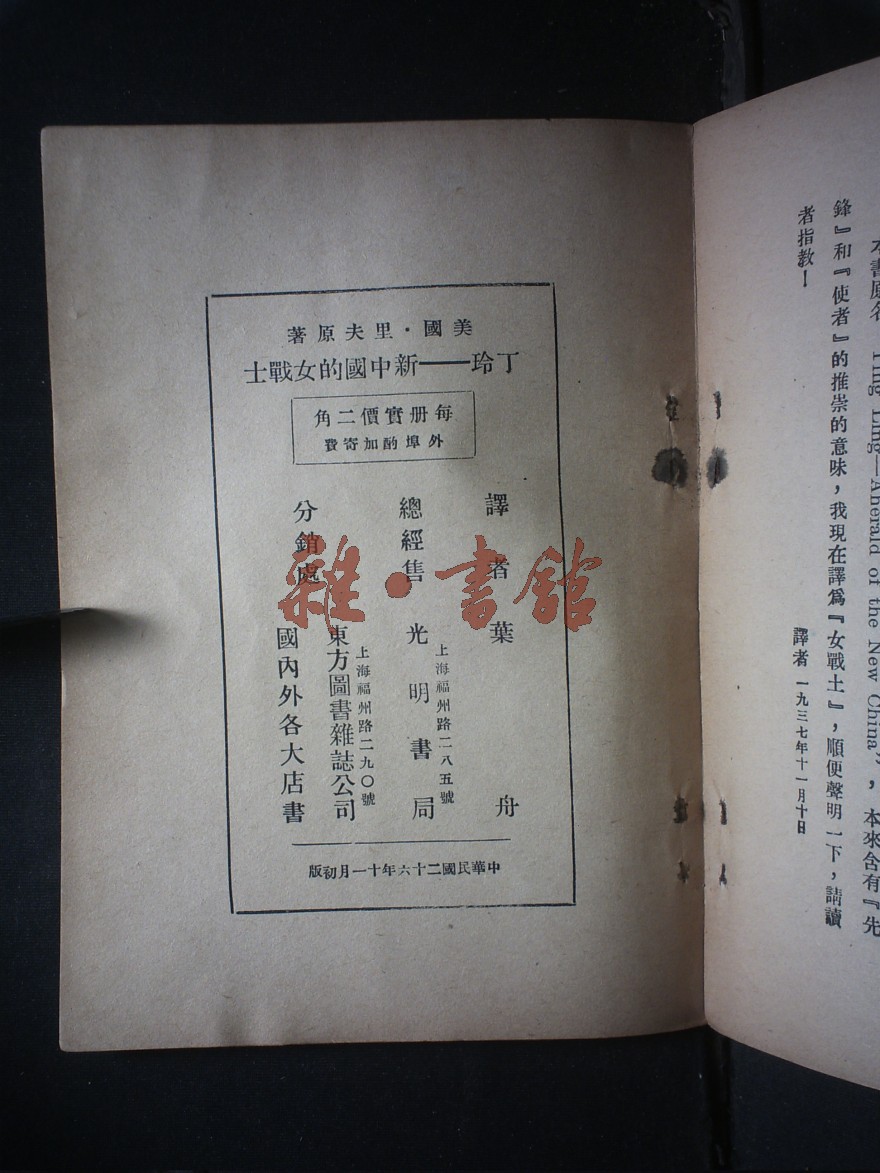 本書原名 Ting Ling—Aherald of the New China”，本來含有『先
鋒』和『使者』的推崇的意味，我現在譯爲『女戰士』，順便聲明一下，請讀
者指教！
譯者 一九三七年十一月十日
美國・里夫原著
丁玲——新中國的女戰士
每册實價二角
外埠酌加寄費
譯者 葉舟
總經售 上海福州路二八五號
光明書局
分銷處 上海福州路二九〇號
東方圖書雜誌公司
國內外各大店書
中華民國二十六年十一月初版
雜・書館